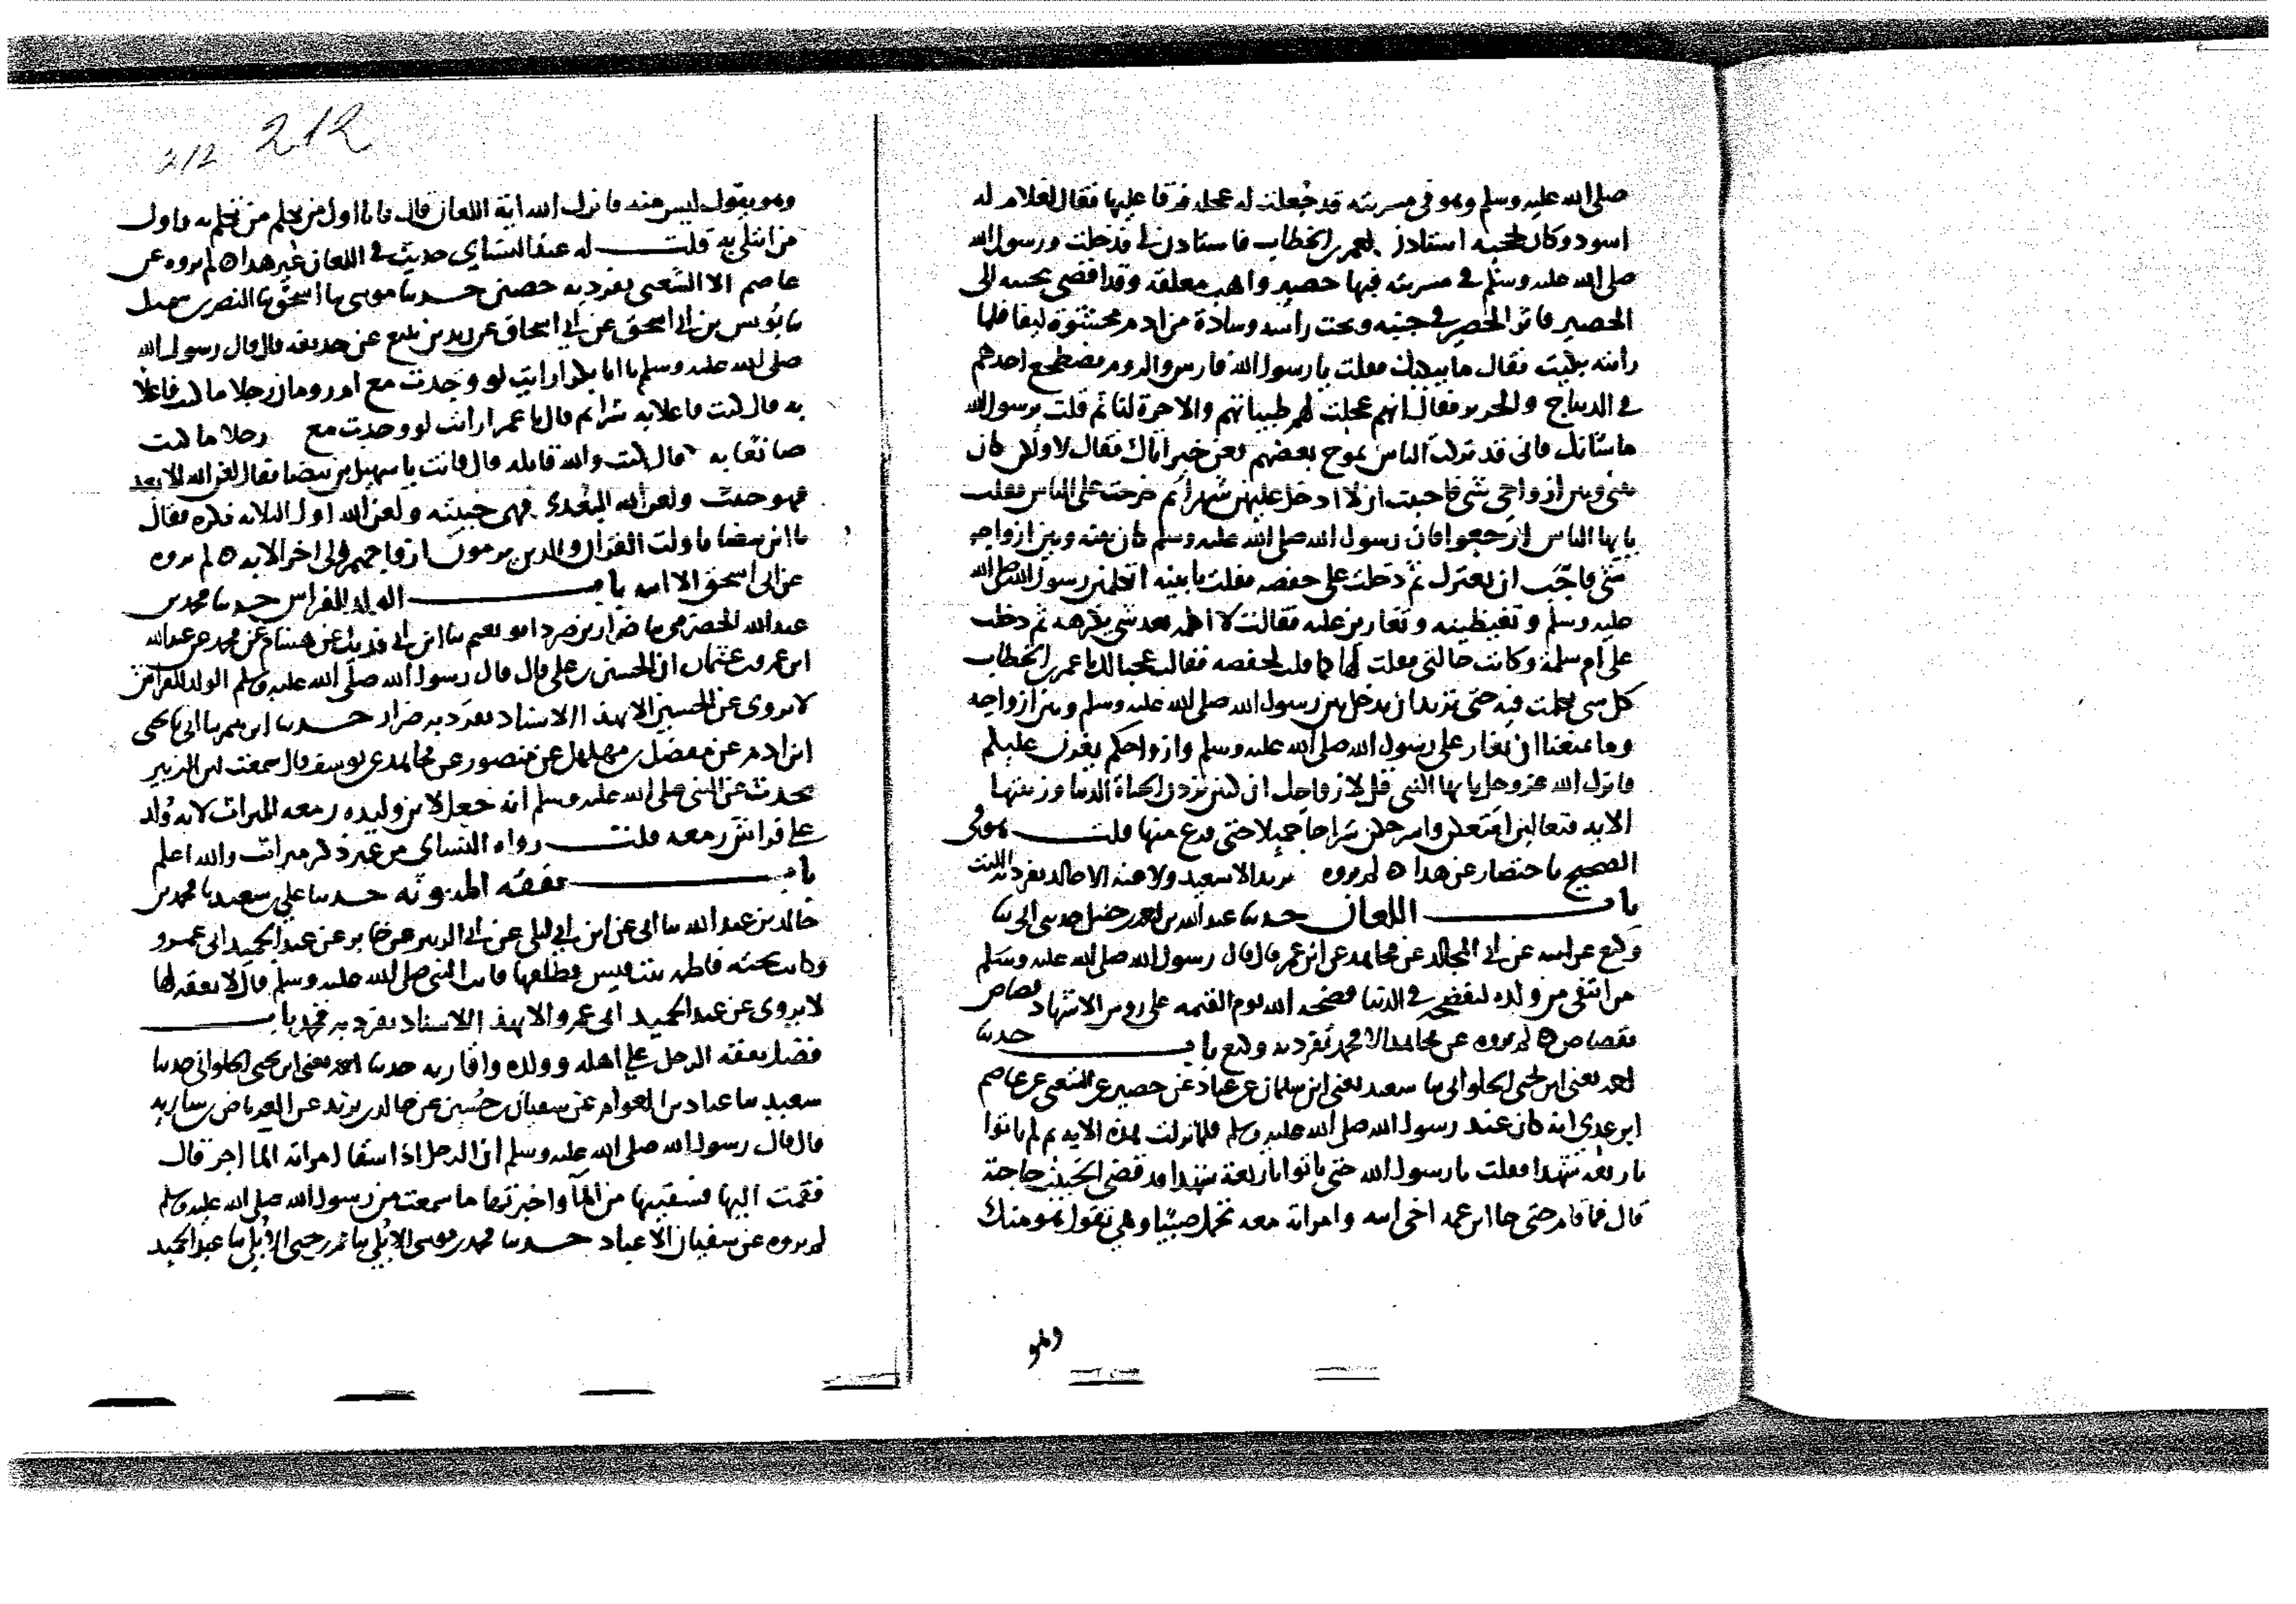 صلى الله عليه وسلم وهو في مسربته قد جعلت له عجله فرقا عليها فقال لغلام له
اسود وكان يحجبه استاذن لعمر بن الخطاب فاستاذن لي فدخلت ورسول الله
صلى الله عليه وسلم في مسربته فيها حصير واهب معلقة وقد افضى بجنبه الى
الحصير فاثر الحصير في جنبه وتحت راسه وسادة من ادم محشوة ليفا فلما
رايته بكيت فقال ما يبكيك فقلت يا رسول الله فارس والروم يضطجع احدهم
في الديباج والحرير فقال انهم عجلت لهم طيباتهم والاخرة لنا ثم قلت يرسول الله
ما شانك فاني قد تركت الناس يموج بعضهم في بعض فقال لا ولكن كان
بيني وبين ازواجي شي فاحببت ان لا ادخل عليهن شهرا ثم خرجت على الناس فقلت
يا يها الناس ارجعوا فان رسول الله صلى الله عليه وسلم كان بينه وبين ازواجه
شي فاحب ان يعتزل ثم دخلت على حفصه فقلت يا بنيه اتكلمين رسول الله صلى الله
عليه وسلم وتغيظينه وتغارين عليه فقالت لا اكلمه بعد بشي يكرهه ثم دخلت
على ام سلمة وكانت خالتي فقلت لها كما قلت لحفصه فقالت عجبا لك يا عمر بن الخطاب
كل شي تكلمت فيه حتى تريد ان تدخل بين رسول الله صلى الله عليه وسلم وبين ازواجه
وما يمنعنا ان نغار على رسول الله صلى الله عليه وسلم وازواجكم يغرن عليكم
فانزل الله عز وجل يا يها النبي قل لازواجك ان كنتن تردن الحياة الدنيا وزينتها
الايه فتعالين امتعكن واسرحكن سراحا جميلا حتى فرغ منها قلت هو في
الصحيح باختصار عن هذا ه لم يروه يزيد الا سعيد ولا عنه الا خالد تفرد به الليث
باب اللعان حدثنا عبد الله بن احمد بن حنبل حدثني ابي ثنا
وكيع عن ابيه عن ابي المجالد عن مجاهد عن ابن عمر قال قال رسول الله صلى الله عليه وسلم
من انتفى من ولده ليفضحه في الدنيا فضحه الله يوم القيمه على روس الاشهاد قصاص
بقصاص ه لم يروه عن مجاهد الا تفرد به وكيع باب حدثنا
احمد يعني ابن يحيى الحلواني ثنا سعيد يعني ابن سليمان عن عباد عن حصين عن الشعبي عن عاصم
ابن عدي انه كان عند رسول الله صلى الله عليه وسلم فلما نزلت هذه الايه ثم لم ياتوا
باربعه شهدا فقلت يا رسول الله حتى ياتوا باربعة شهدا قد قضى الخبيث حاجته
قال فما قام حتى جا ابن عمه اخي ابيه وامراته معه تحمل صبيا وهي تقول هو منك
وهو
212
212
وهو يقول ليس منه فانزل الله اية اللعان قال فانا اول من تكلم به واول
من ابتلي به قلت له عند النسائي حديث في اللعان غير هذا ه لم يروه عن
عاصم الا الشعبي تفرد به حصين حدثنا موسى ثنا اسحق ثنا النضر بن شميل
ثنا يونس بن ابي اسحق عن ابي اسحاق عن زيد بن يثيع عن حذيفه قال قال رسول الله
صلى الله عليه وسلم يا ابا بكر ارايت لو وجدت مع ام رومان رجلا ما كنت فاعلا
به قال كنت فاعلا به شرا ثم قال يا عمر ارايت لو وجدت مع رجلا ما كنت
صانعا به قال كنت والله قاتله قال فانت يا سهيل بن بيضا فقال لعن الله الابعد
فهو خبيث ولعن الله البعدى فهي خبيثه ولعن الله اول الثلاثه ذكره فقال
يا ابن بيضا تاولت القران والذين يرمون ازواجهم الى اخر الايه ه لم يروه
عن ابي اسحق الا ابنه باب الولد للفراش حدثنا محمد بن
عبد الله الحضرمي ثنا ضرار بن صرد ابو نعيم ثنا ابن ابي فديك عن هشام عن محمد بن عبد الله
ابن عمرو بن عثمان ان الحسين بن علي قال قال رسول الله صلى الله عليه وسلم الولد للفراش
لا يروى عن الحسين الا بهذا الاسناد تفرد به ضرار حدثنا
ابن ادم عن مفضل بن مهلهل عن منصور عن مجاهد عن يوسف قال سمعت ابن الزبير
يحدث عن النبي صلى الله عليه وسلم انه جعل لابن وليده زمعه الميراث لانه ولد
على فراش زمعه قلت رواه النسائي من غير ذكر ميراث والله اعلم
باب نفقه المبتوته حدثنا علي بن سعيد ثنا محمد بن
خالد بن عبد الله ثنا ابي عن ابن ابي ليلى عن ابي الزبير عن جابر عن عبد الحميد ابي عمرو
وكانت تحته فاطمه بنت قيس فطلقها فاتت النبي صلى الله عليه وسلم قال لا نفقه لها
لا يروى عن عبد الحميد ابي عمرو الا بهذا الاسناد تفرد به محمد باب
فضل نفقه الرجل على اهله وولده واقاربه حدثنا احمد يعني ابن يحيى الحلواني حدثنا
سعيد ثنا عباد بن العوام عن سفيان بن حسين عن خالد بن يزيد عن العرباض بن ساريه
قال قال رسول الله صلى الله عليه وسلم ان الرجل اذا سقا امراته الما اجر قال
فقمت اليها فسقيتها من الما واخبرتها ما سمعت من رسول الله صلى الله عليه وسلم
لم يروه عن سفيان الا عباد حدثنا محمد بن موسى الابلي ثنا عمر بن يحيى الابلي ثنا عبد الحميد